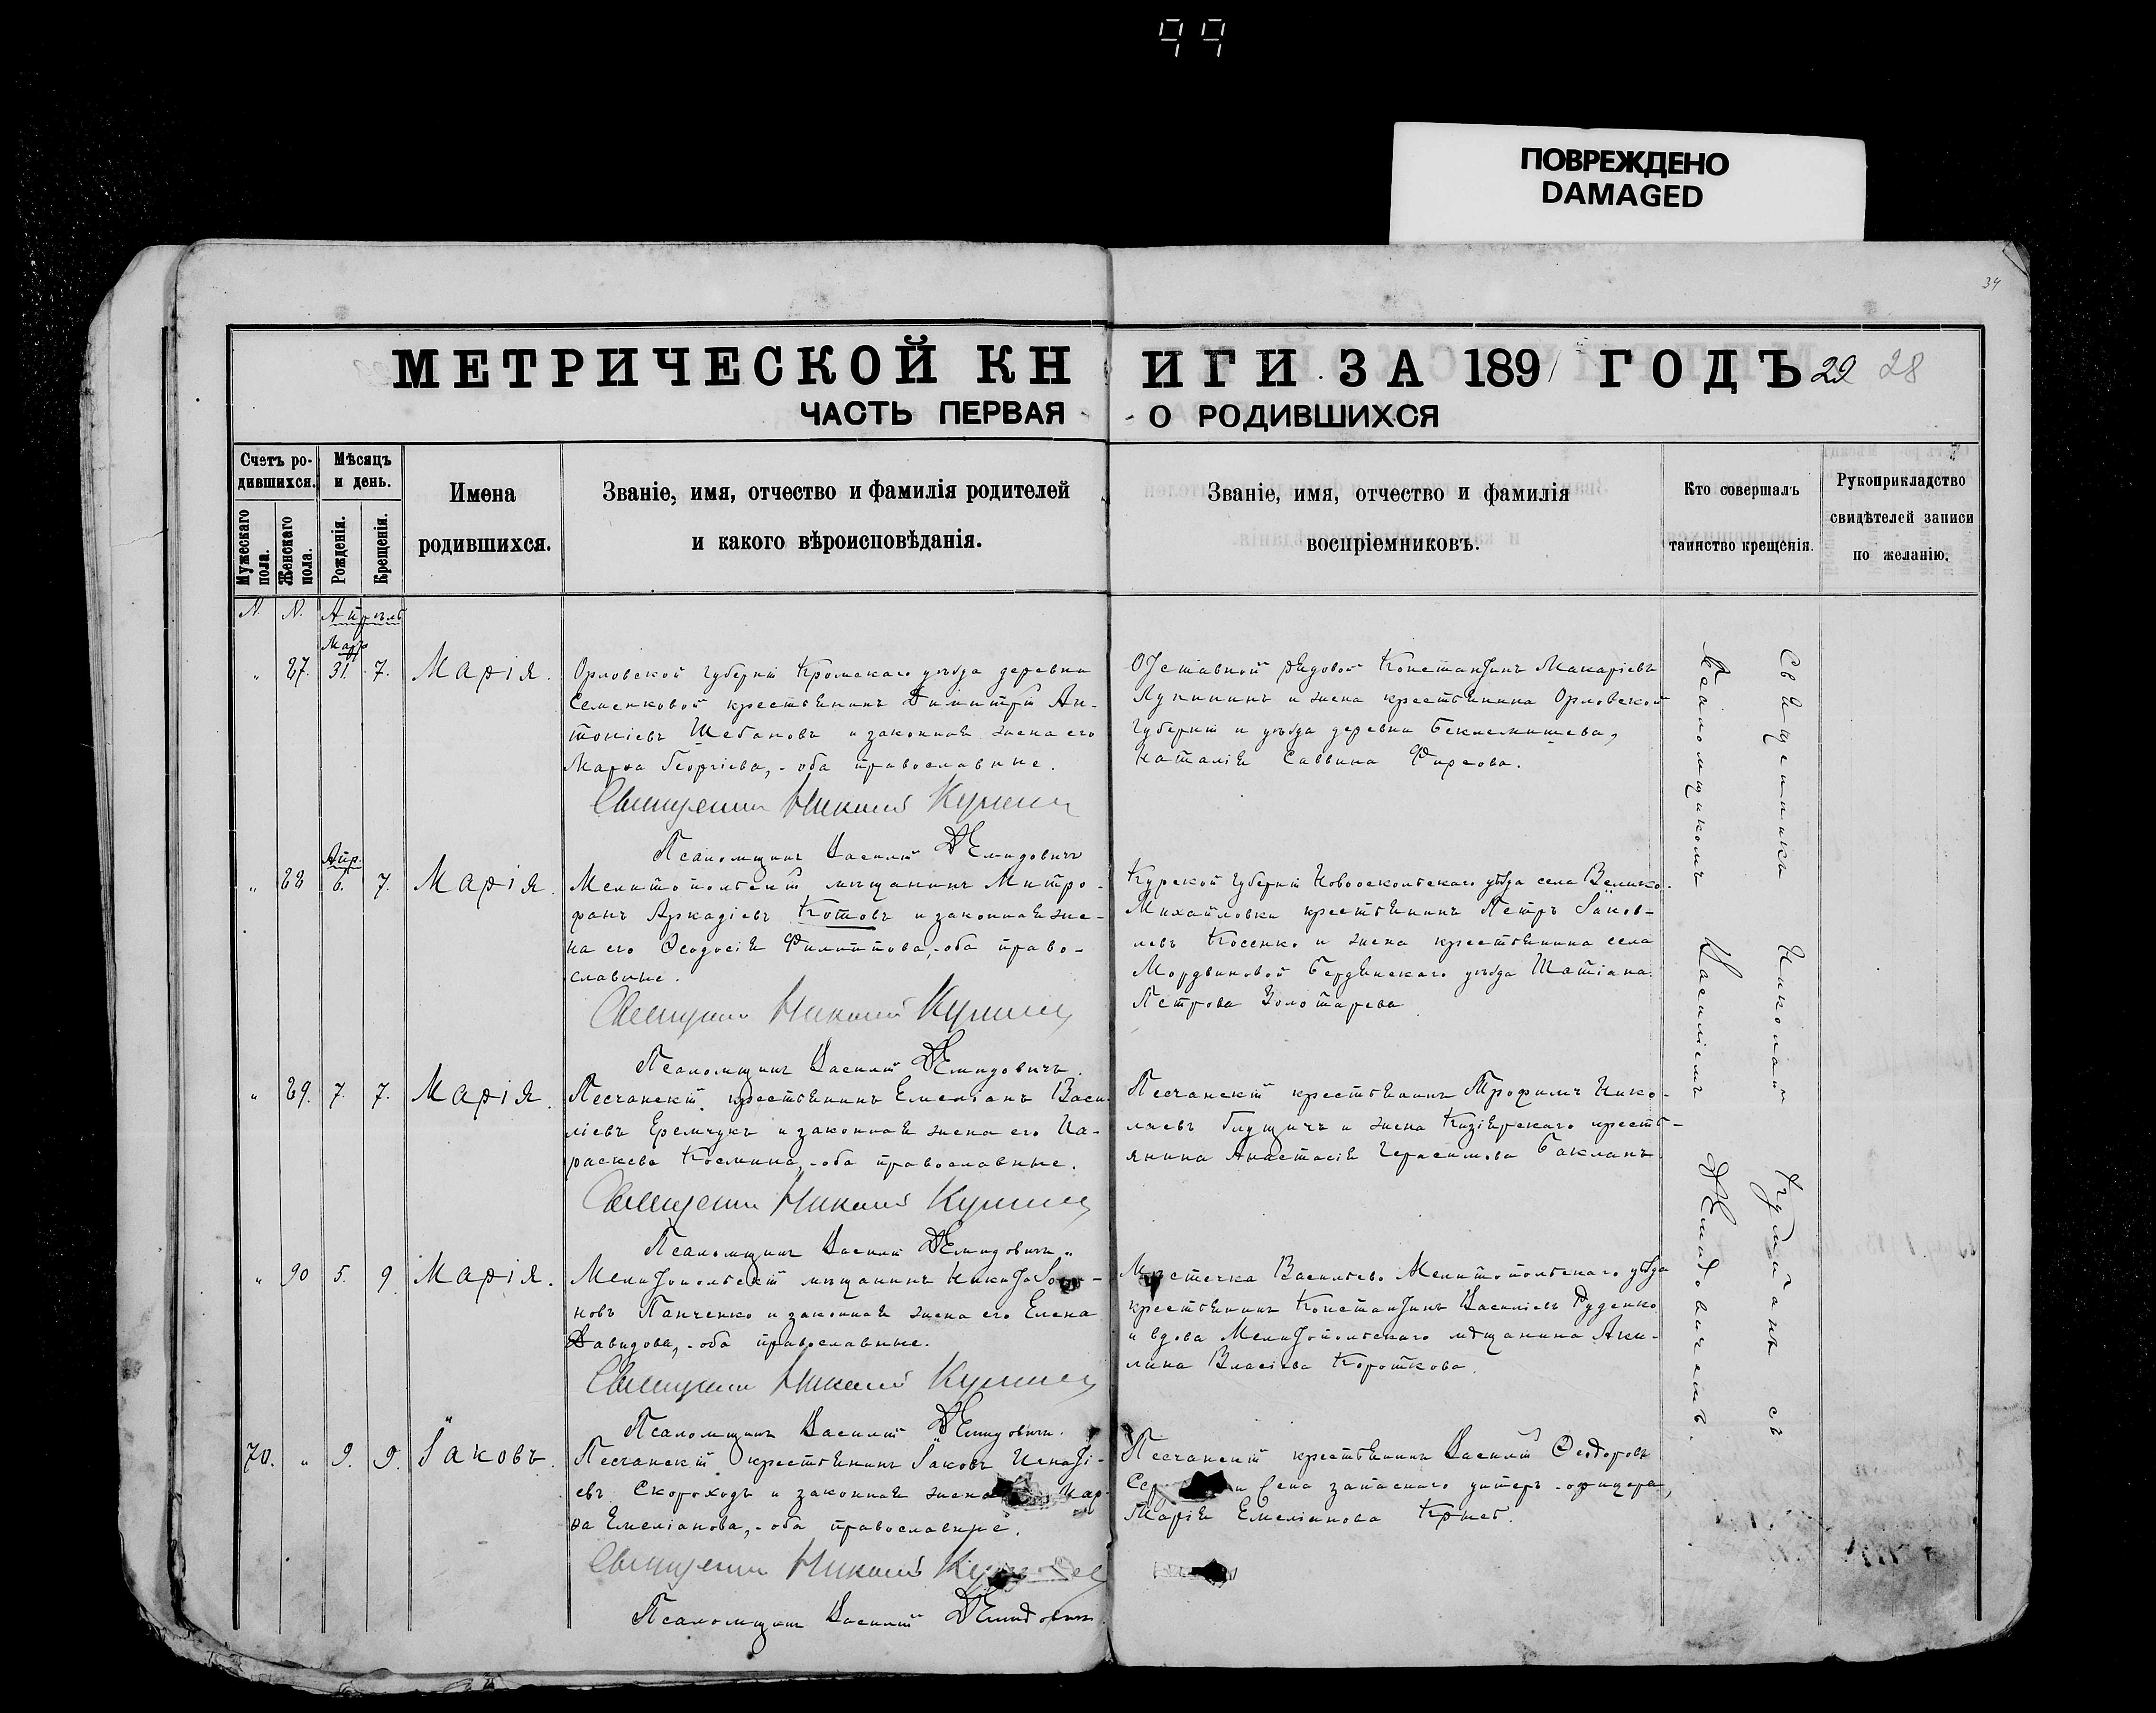 99
ПОВРЕЖДЕНО
DAMAGED
34
МЕТРИЧЕСКОЙ КНИГИ ЗА 1891 ГОДЪ 29 28
ЧАСТЬ ПЕРВАЯ О РОДИВШИХСЯ
Счетъ родившихся.
Мужескаго пола.
Женскаго пола.
Мѣсяцъ и день.
Рожденія.
Крещенія.
Имена
родившихся.
Званіе, имя, отчество и фамилія родителей
и какого вѣроисповѣданія.
Званіе, имя, отчество и фамилія
воспріемниковъ.
Кто совершалъ
таинство крещенія.
Рукоприкладство
свидѣтелей записи
по желанію.
N. N. Апрѣль
Мар.
" 87. 31. 7. Марія.
Орловской губерніи Кромскаго уѣзда деревни
Семенковой крестьянинъ Димитрій Ан-
тоніевъ Шебановъ и законная жена его
Марѳа Георгіева, - оба православные.
Священникъ Николай
Псаломщикъ Василій Демидовичъ
Отставной рядовой Константинъ Макаріевъ
Лупининъ и жена крестьянина Орловской
губерніи и уѣзда деревни Беклемишева,
Наталія Саввина Фирсова.
Апр.
" 88 6. 7. Марія
Мелитопольскій мѣщанинъ Митро-
фанъ Аркадіевъ Котовъ и законная же-
на его Ѳеодосія Филиппова, - оба право-
славные.
Священникъ Николай
Псаломщикъ Василій Демидовичъ.
Курской губерніи Новооскольскаго уѣзда села Велико-
Михайловки крестьянинъ Петръ Іаков-
левъ Косенко и жена крестьянина села
Мордвиновой Бердянскаго уѣзда Татіана
Петрова Золотарева
" 89. 7. 7. Марія.
Песчанскій крестьянинъ Емеліанъ Васи-
ліевъ Еремчукъ и законная жена его Па-
раскева Космина, - оба православные.
Священникъ Николай
Псаломщикъ Василій Демидовичъ.
Песчанскій крестьянинъ Трофимъ Нико-
лаевъ и жена крестья-
янина Анастасія Герасимова Бакланъ
" 90 5. 9. Марія.
Мелитопольскій мѣщанинъ Никита
новъ Панченко и законная жена его Елена
Давидова, - оба православные.
Священникъ Николай
Псаломщикъ Василій Демидовичъ.
Мѣстечка Васильево Мелитопольскаго уѣзда
крестьянинъ Константинъ Василіевъ Руденко
и вдова Мелитопольскаго мѣщанина Аки-
лина Власіева Короткова.
70. " 9. 9. Іаковъ.
Песчанскій крестьянинъ Іаковъ Игнаті-
евъ Скороходъ и законная жена Мар-
ѳа Емеліанова, - оба православные.
Священникъ Николай
Псаломщикъ Василій Демидовичъ.
Песчанскій крестьянинъ Василій Ѳеодоровъ
и жена запаснаго унтеръ-офицера,
Марія Емеліанова
Священникъ Николай съ
Псаломщикомъ Василіемъ Демидовичемъ.